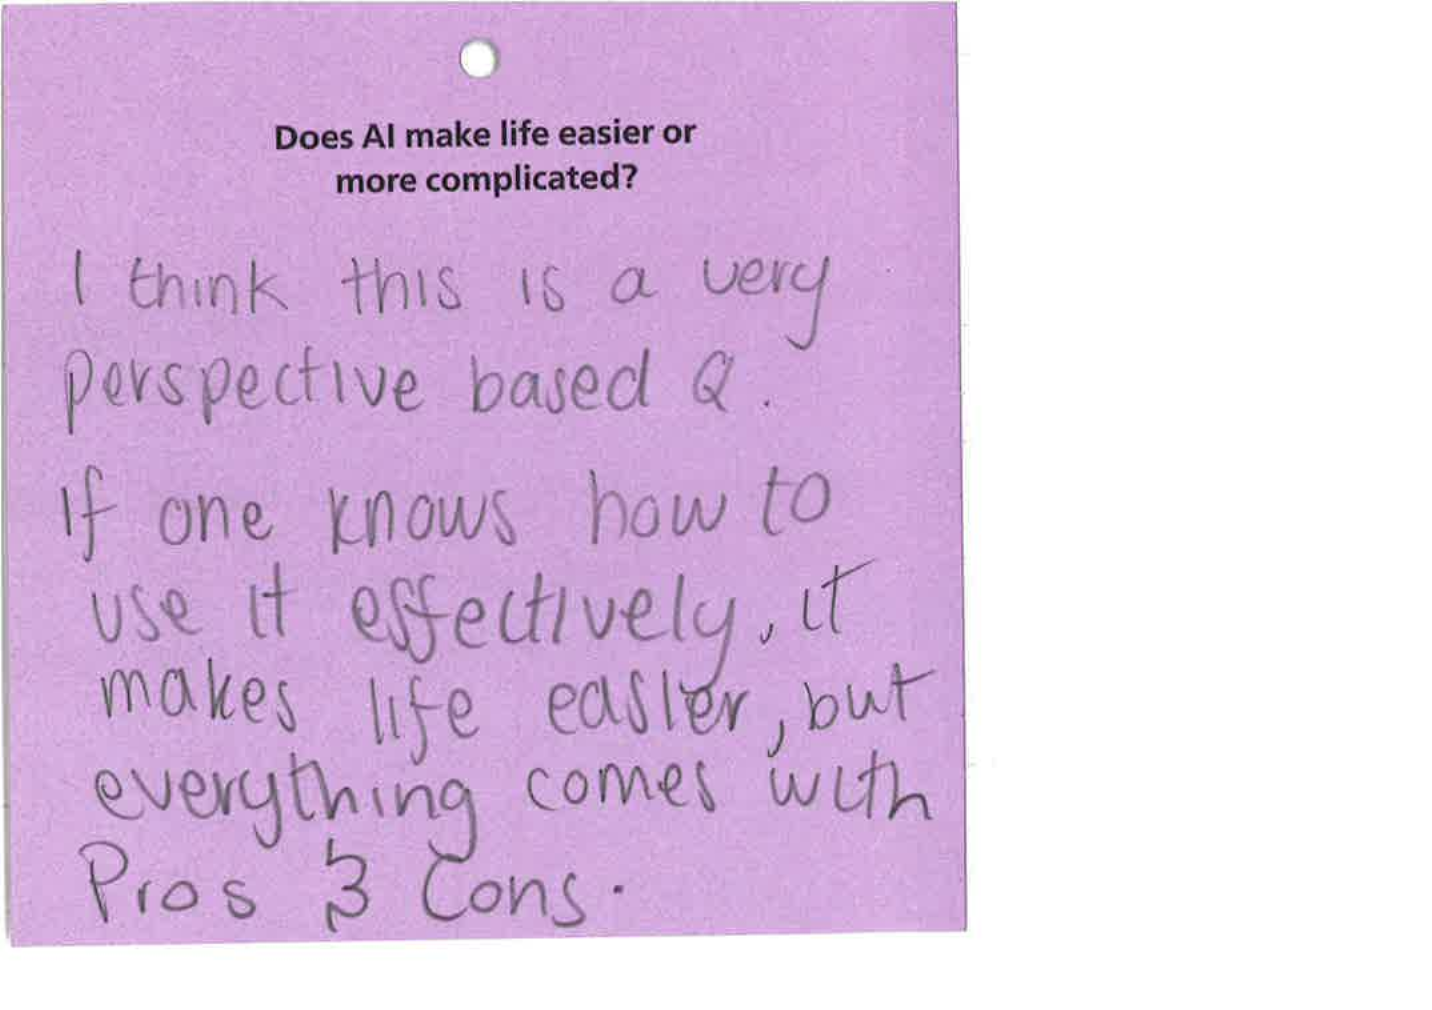 Does AI make life easier or
more complicated?
I think this is a very
perspective based Q.
If one knows how to
use it effectively, it
makes life easier, but
everything comes with
Pros & Cons.